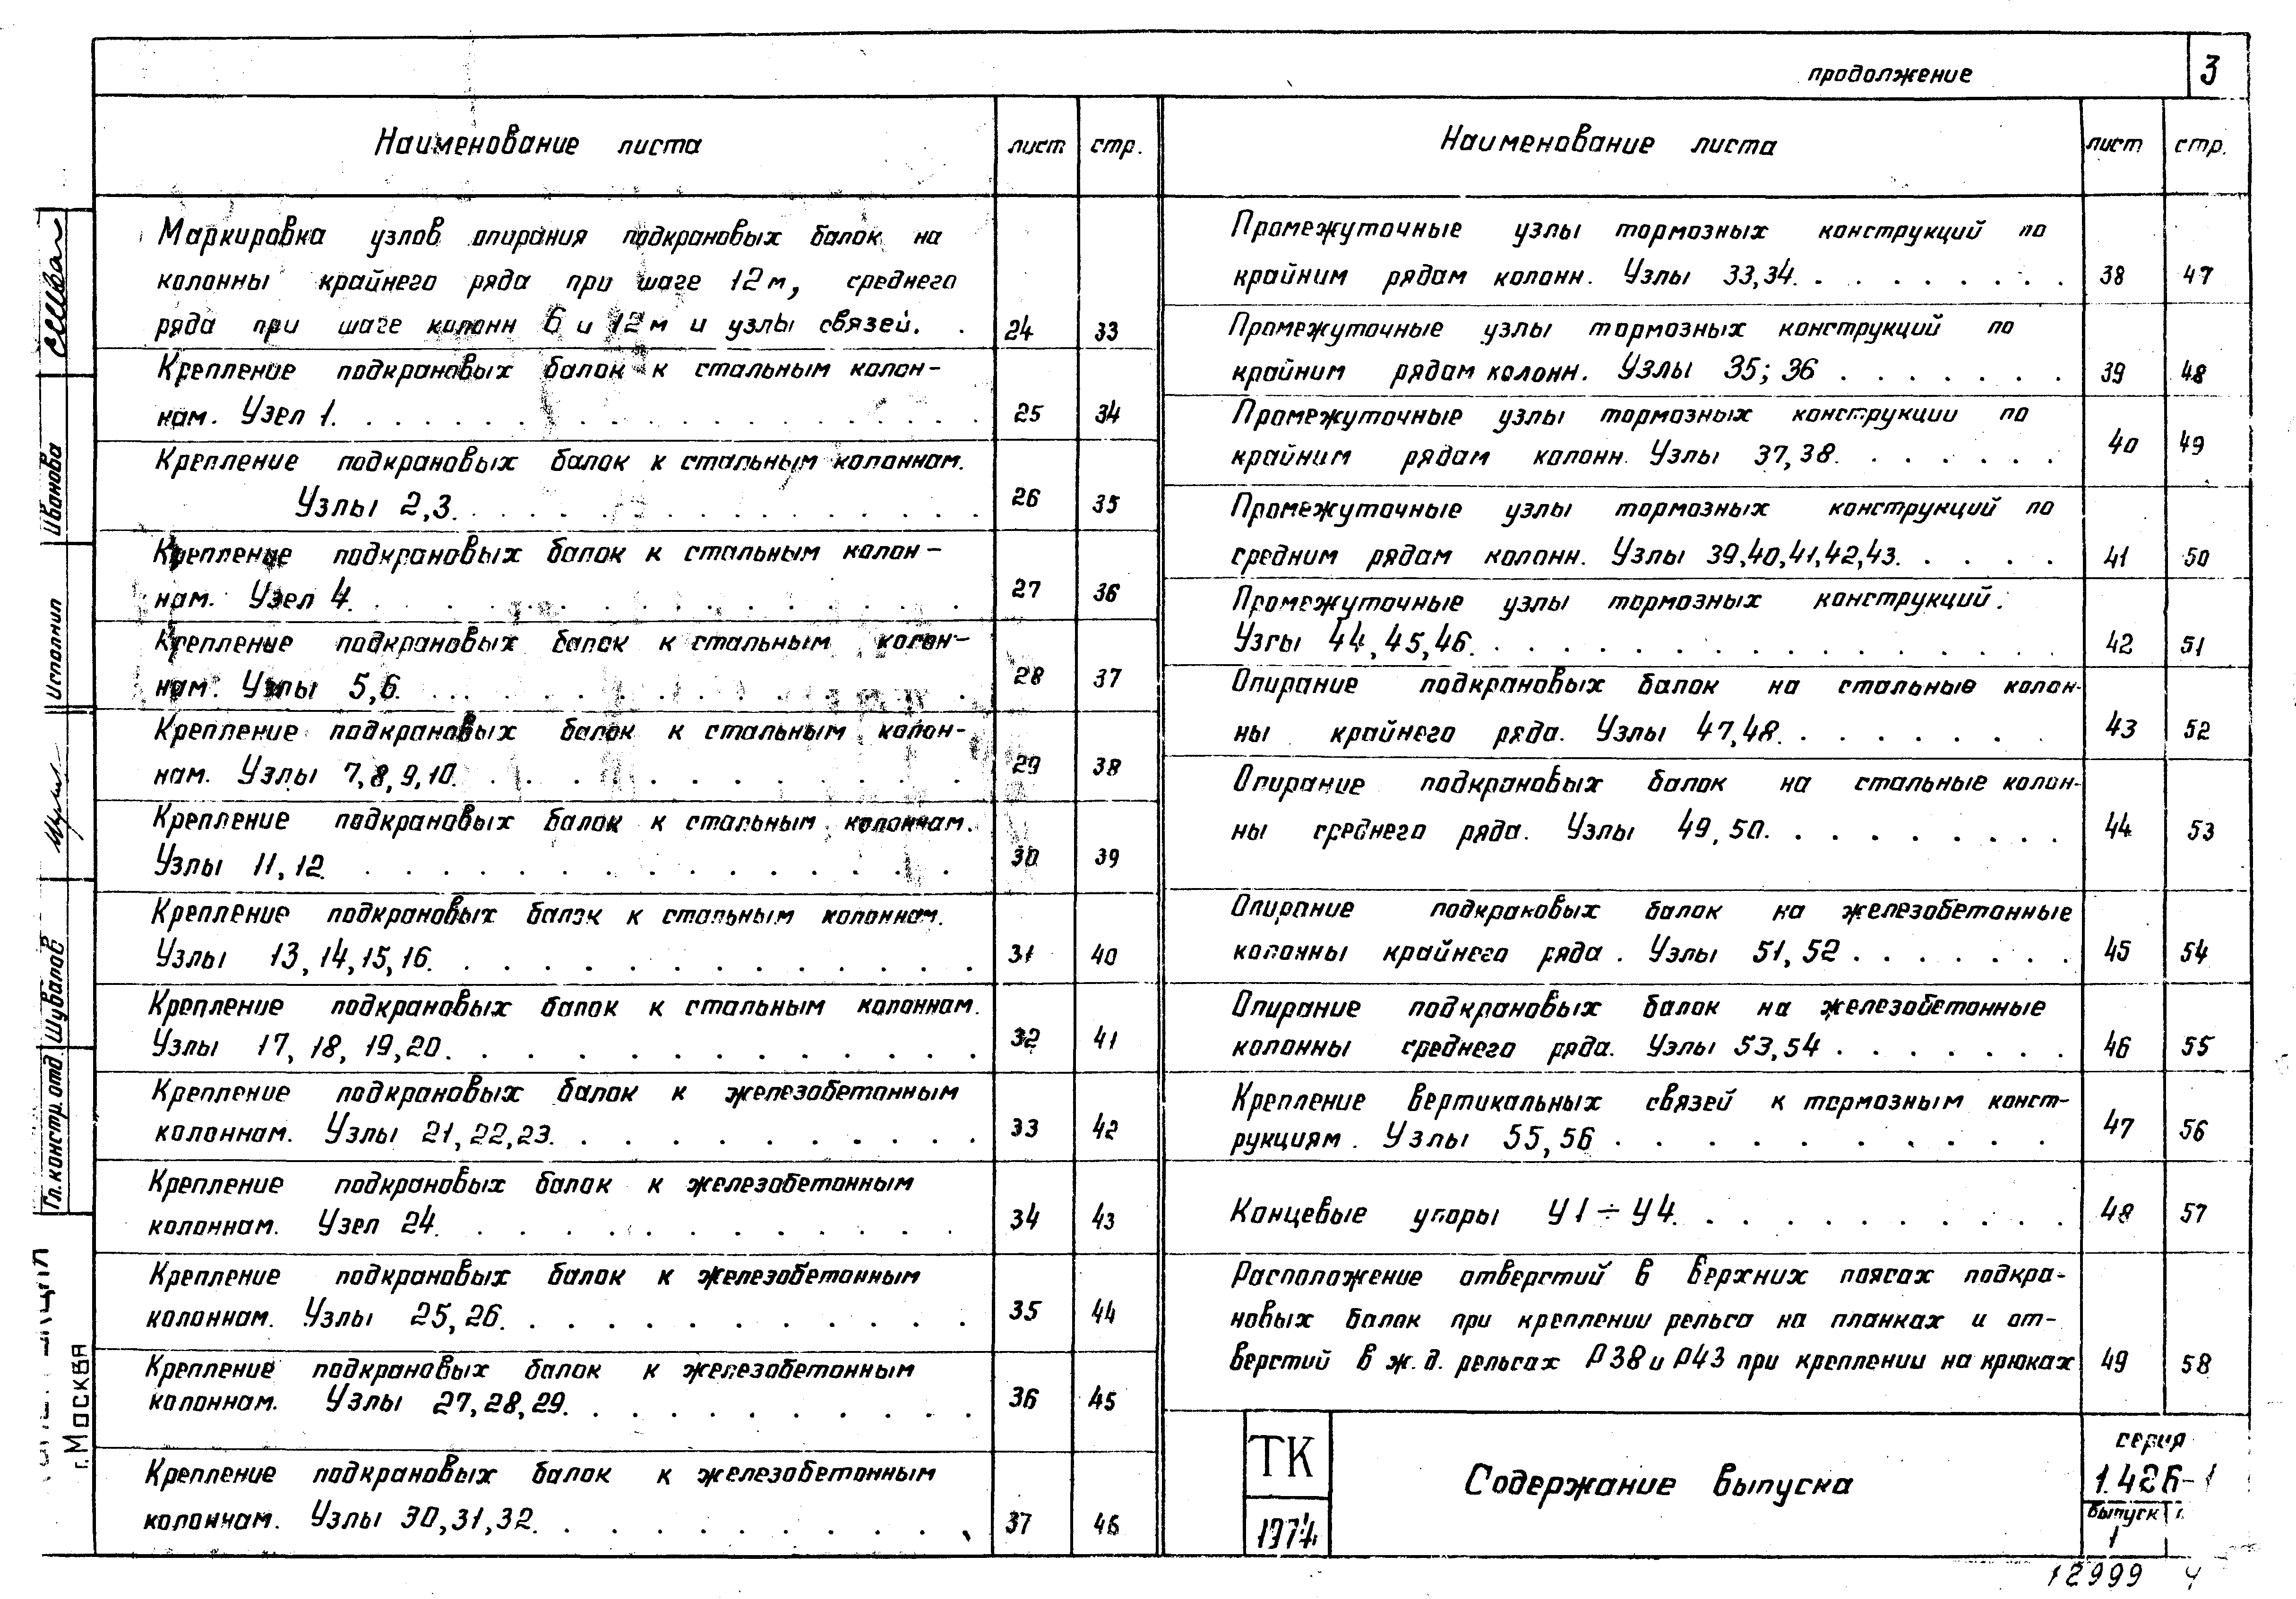 продолжение 3
Наименование листа лист стр.
Маркировка узлов опирания подкрановых балок на
колонны крайнего ряда при шаге 12м, среднего
ряда при шаге колонн 6 и 12м и узлы связей. . 24 33
Крепление подкрановых балок к стальным колон-
нам. Узел 1. 25 34
Крепление подкрановых балок к стальным колоннам.
Узлы 2,3. 26 35
Крепление подкрановых балок к стальным колон-
нам. Узел 4. 27 36
Крепление подкрановых балок к стальным колон-
нам. Узлы 5,6. 28 37
Крепление подкрановых балок к стальным колон-
нам. Узлы 7,8,9,10. 29 38
Крепление подкрановых балок к стальным колоннам.
Узлы 11,12. 30 39
Крепление подкрановых балок к стальным колоннам.
Узлы 13,14,15,16. 31 40
Крепление подкрановых балок к стальным колоннам.
Узлы 17, 18, 19,20. 32 41
Крепление подкрановых балок к железобетонным
колоннам. Узлы 21,22,23. 33 42
Крепление подкрановых балок к железобетонным
колоннам. Узел 24. 34 43
Крепление подкрановых балок к железобетонным
колоннам. Узлы 25,26. 35 44
Крепление подкрановых балок к железобетонным
колоннам. Узлы 27,28,29. 36 45
Крепление подкрановых балок к железобетонным
колоннам. Узлы 30,31,32. 37 46
Наименование листа лист стр.
Промежуточные узлы тормозных конструкций по
крайним рядам колонн. Узлы 33,34. 38 47
Промежуточные узлы тормозных конструкций по
крайним рядам колонн. Узлы 35; 36 39 48
Промежуточные узлы тормозных конструкции по
крайним рядам колонн. Узлы 37,38. 40 49
Промежуточные узлы тормозных конструкций по
средним рядам колонн. Узлы 39,40,41,42,43. 41 50
Промежуточные узлы тормозных конструкций.
Узлы 44,45,46. 42 51
Опирание подкрановых балок на стальные колон-
ны крайнего ряда. Узлы 47,48. 43 52
Опирание подкрановых балок на стальные колон-
ны среднего ряда. Узлы 49,50. 44 53
Опирание подкрановых балок на железобетонные
колонны крайнего ряда. Узлы 51,52 45 54
Опирание подкрановых балок на железобетонные
колонны среднего ряда. Узлы 53,54 46 55
Крепление вертикальных связей к тормозным конст-
рукциям. Узлы 55,56 47 56
Концевые упоры У1÷У4. 48 57
Расположение отверстий в верхних поясах подкра-
новых балок при креплении рельса на планках и от-
верстий в ж.д. рельсах Р38 и Р43 при креплении на крюках 49 58
ТК
1974
Содержание выпуска
серия
1.426-1
выпуск
1
12999 4
Гл.констр.отд. Шувалов
Исполнил Иванова
г. Москва